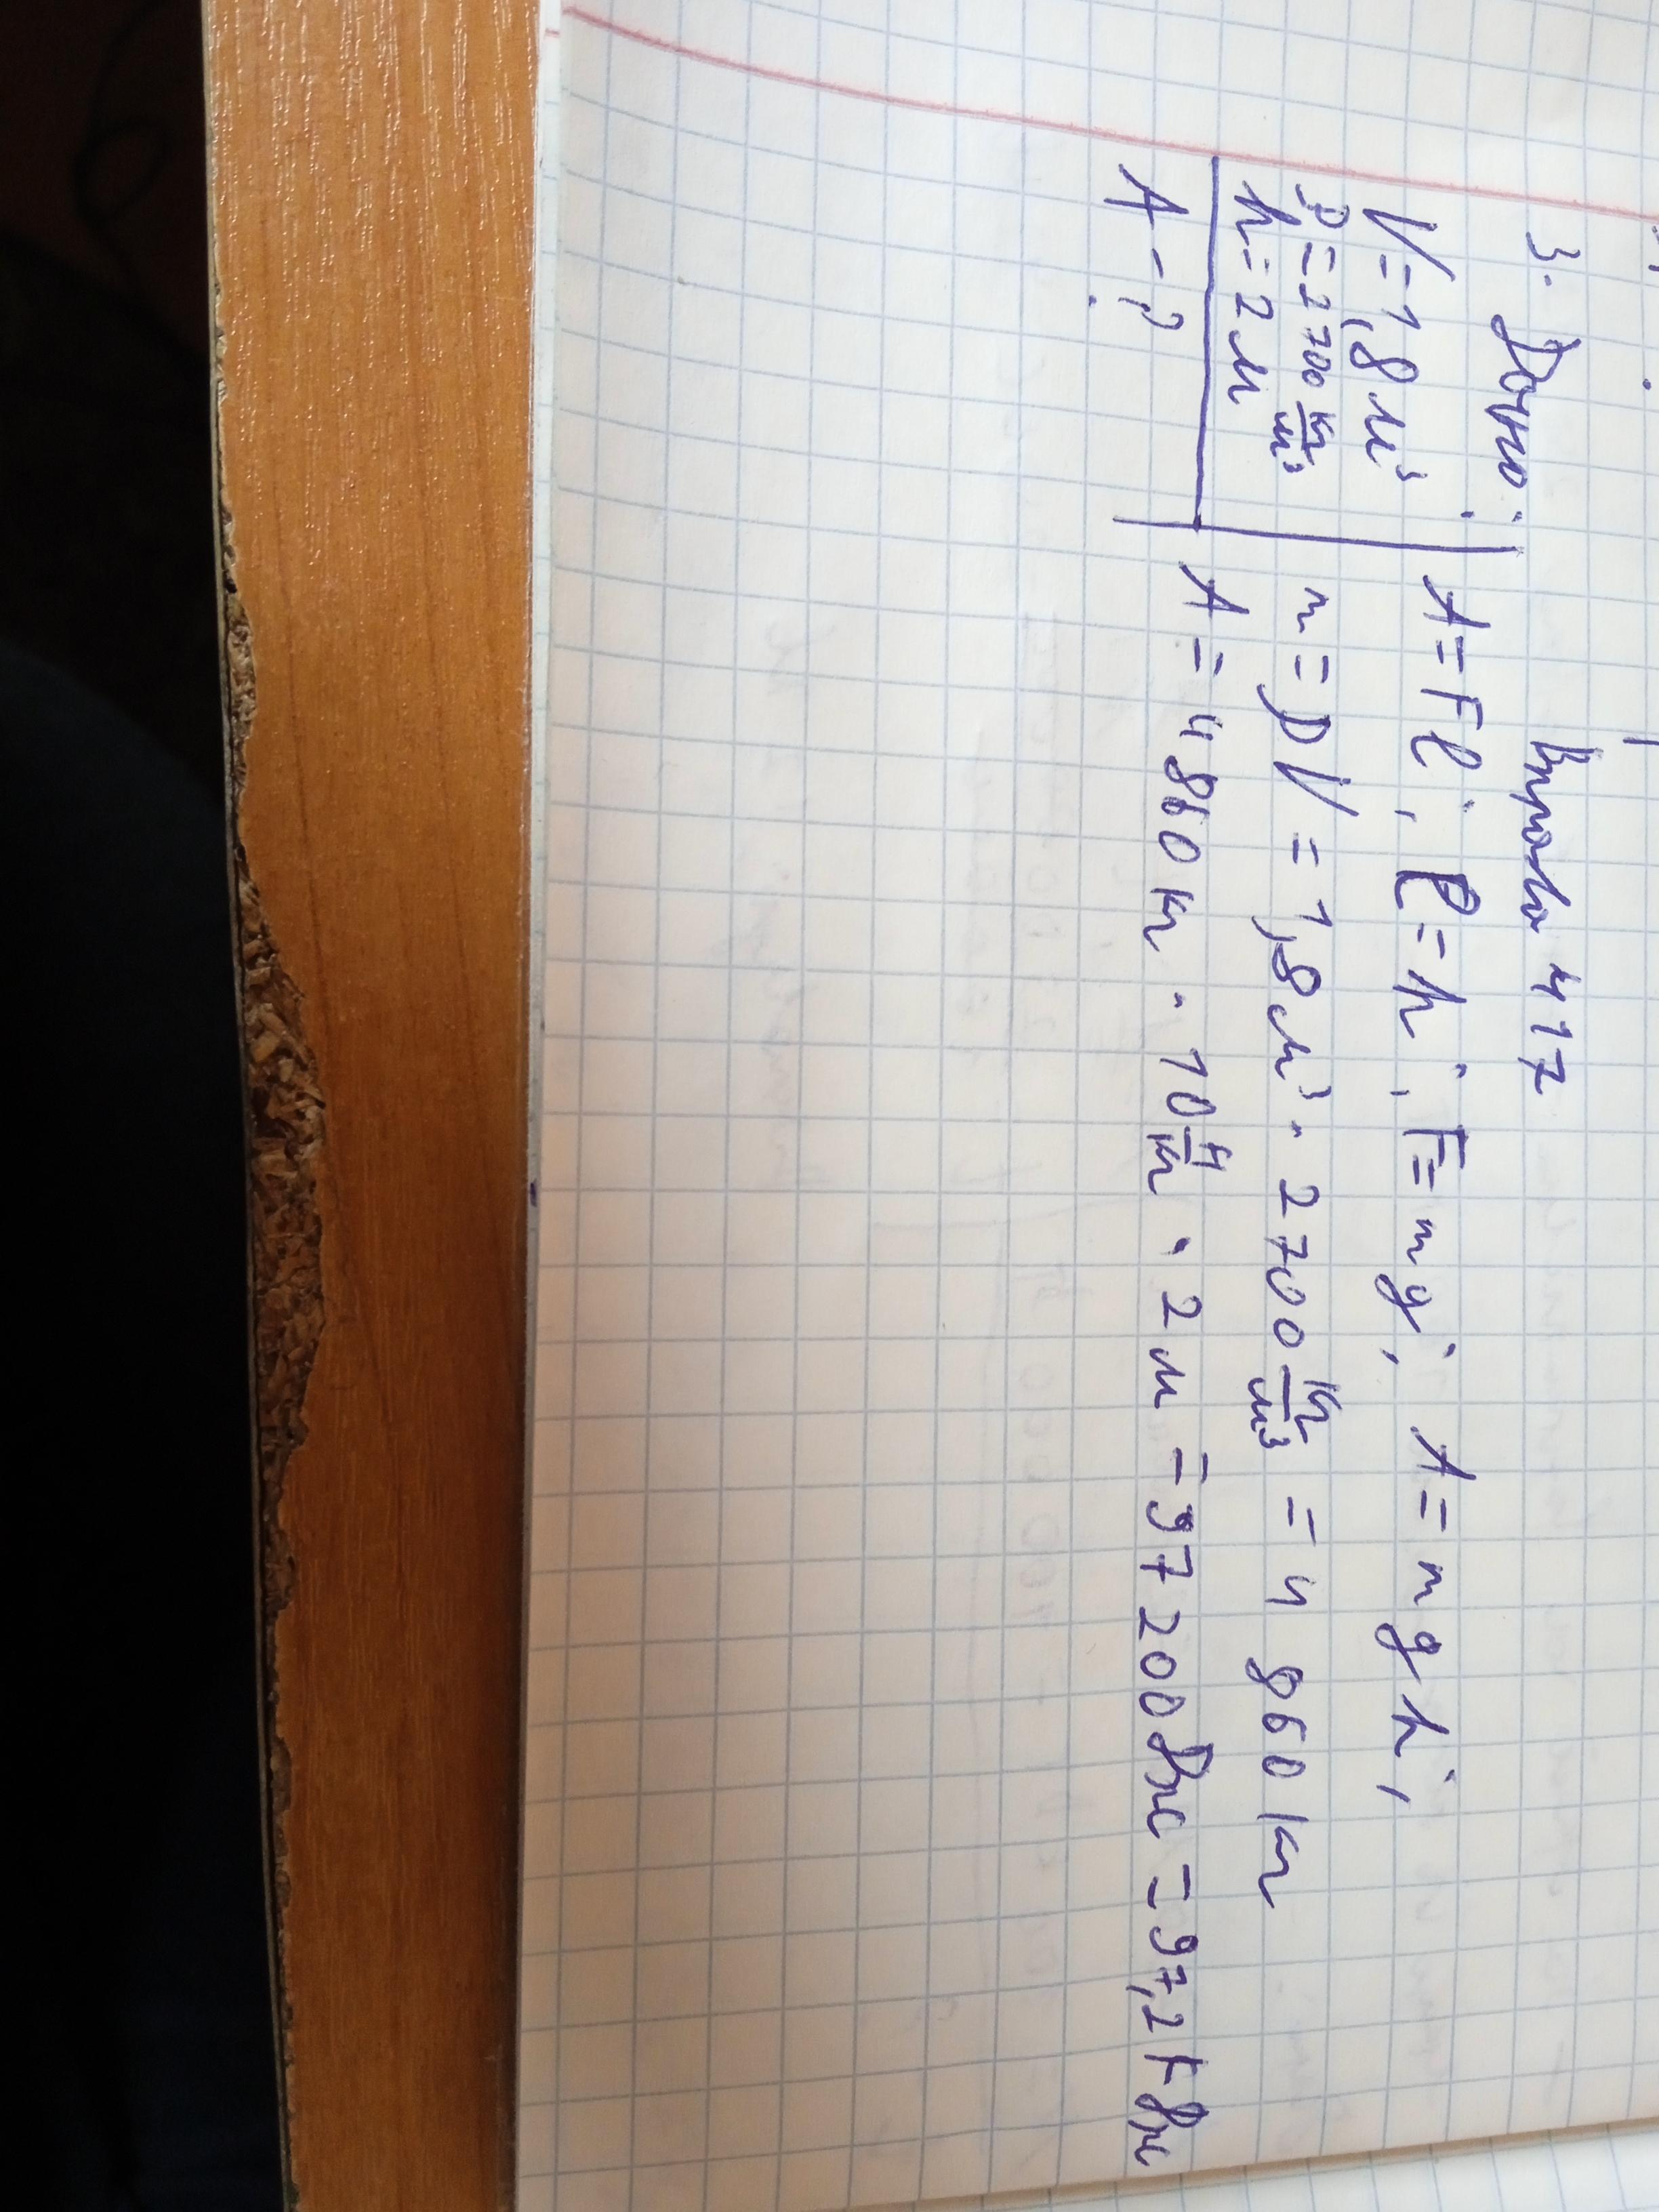 Вправа 417
3. Дано:
V = 1,8 м³
ρ = 2700 кг/м³
h = 2 м
A - ?
A = Fl; l = h; F = mg; A = mgh;
m = ρV = 1,8 м³ · 2700 кг/м³ = 4 860 кг
A = 4860 кг · 10 Н/кг · 2 м = 97 200 Дж = 97,2 кДж